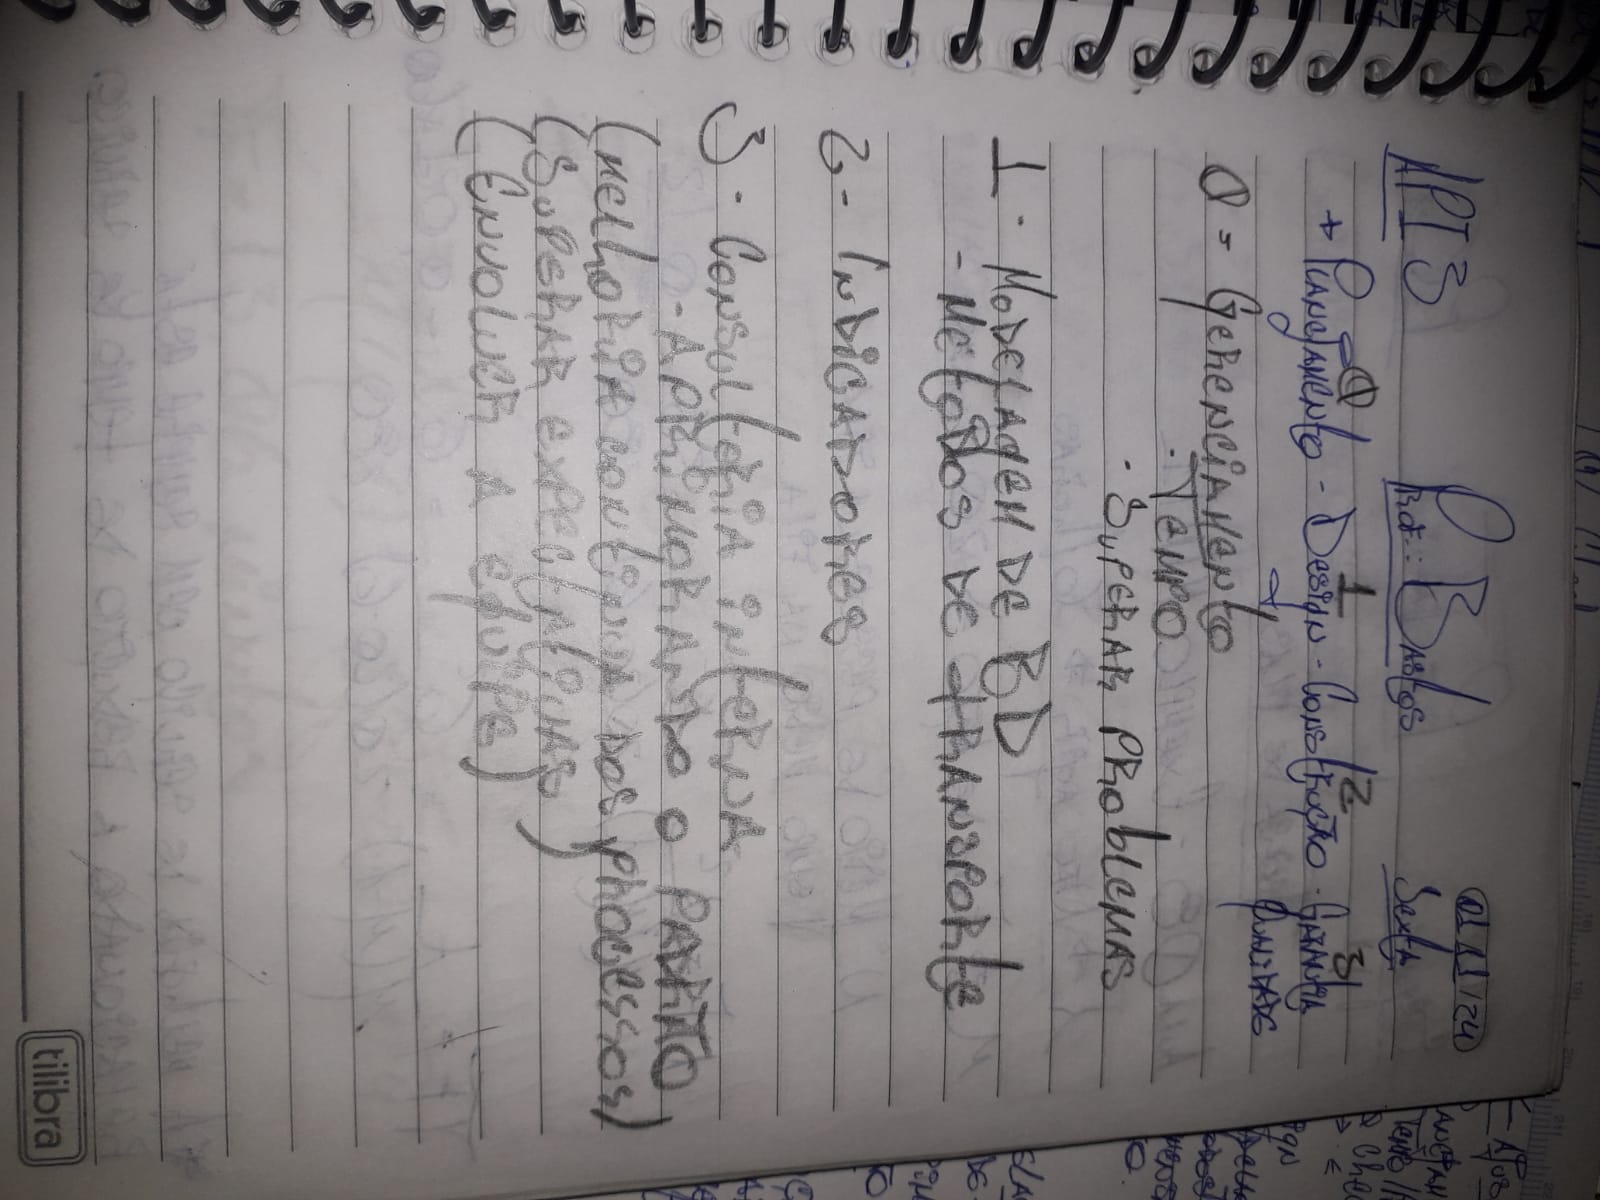 API 3 Prof.: Bastos 01/11/24
Sexta
0 1 2 3
+ Planejamento - Design - Construção - Garantia
Qualidade
0 = Gerenciamento
- Tempo
- Superar problemas
1 - Modelagem de BD
- Métodos de transporte
2 - Indicadores
3 - Consultoria interna
- Aprimorando o padrão
(Melhoria contínua dos processos)
(Superar expectativas)
(Envolver a equipe)
tilibra